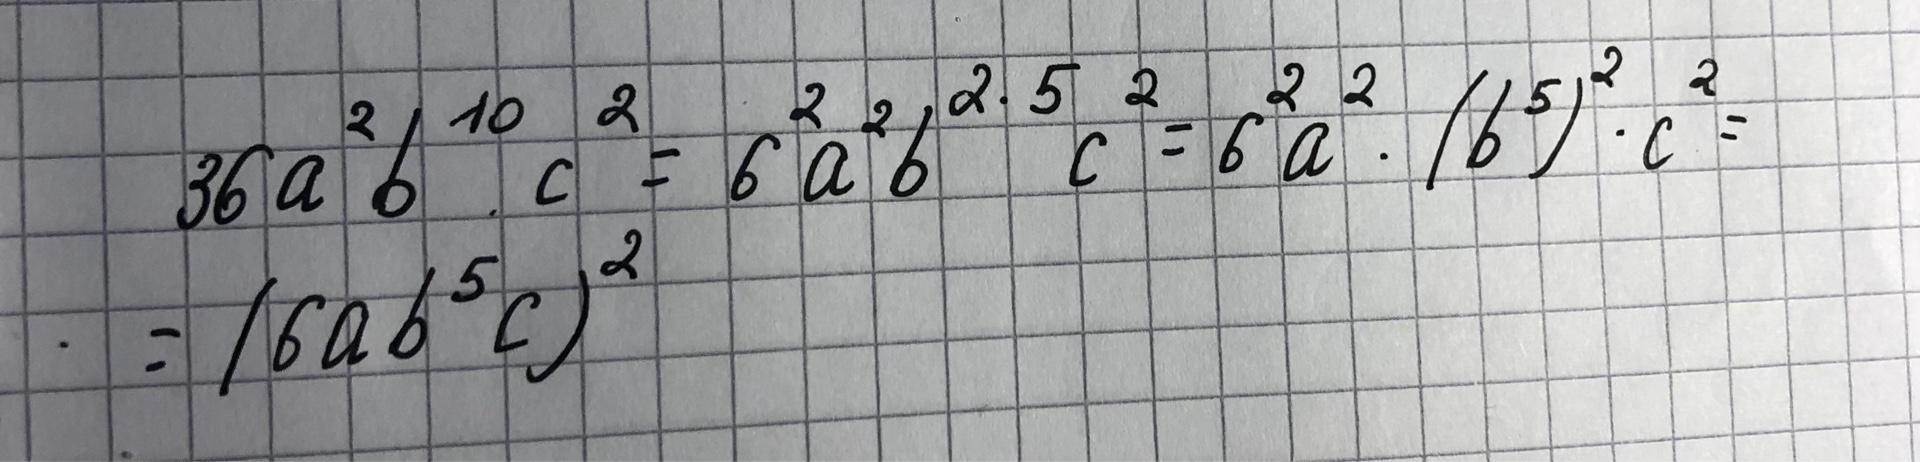 36a²b¹⁰·c² = 6²a²b²·⁵c² = 6²a²·(b⁵)²·c² =
= (6ab⁵c)²